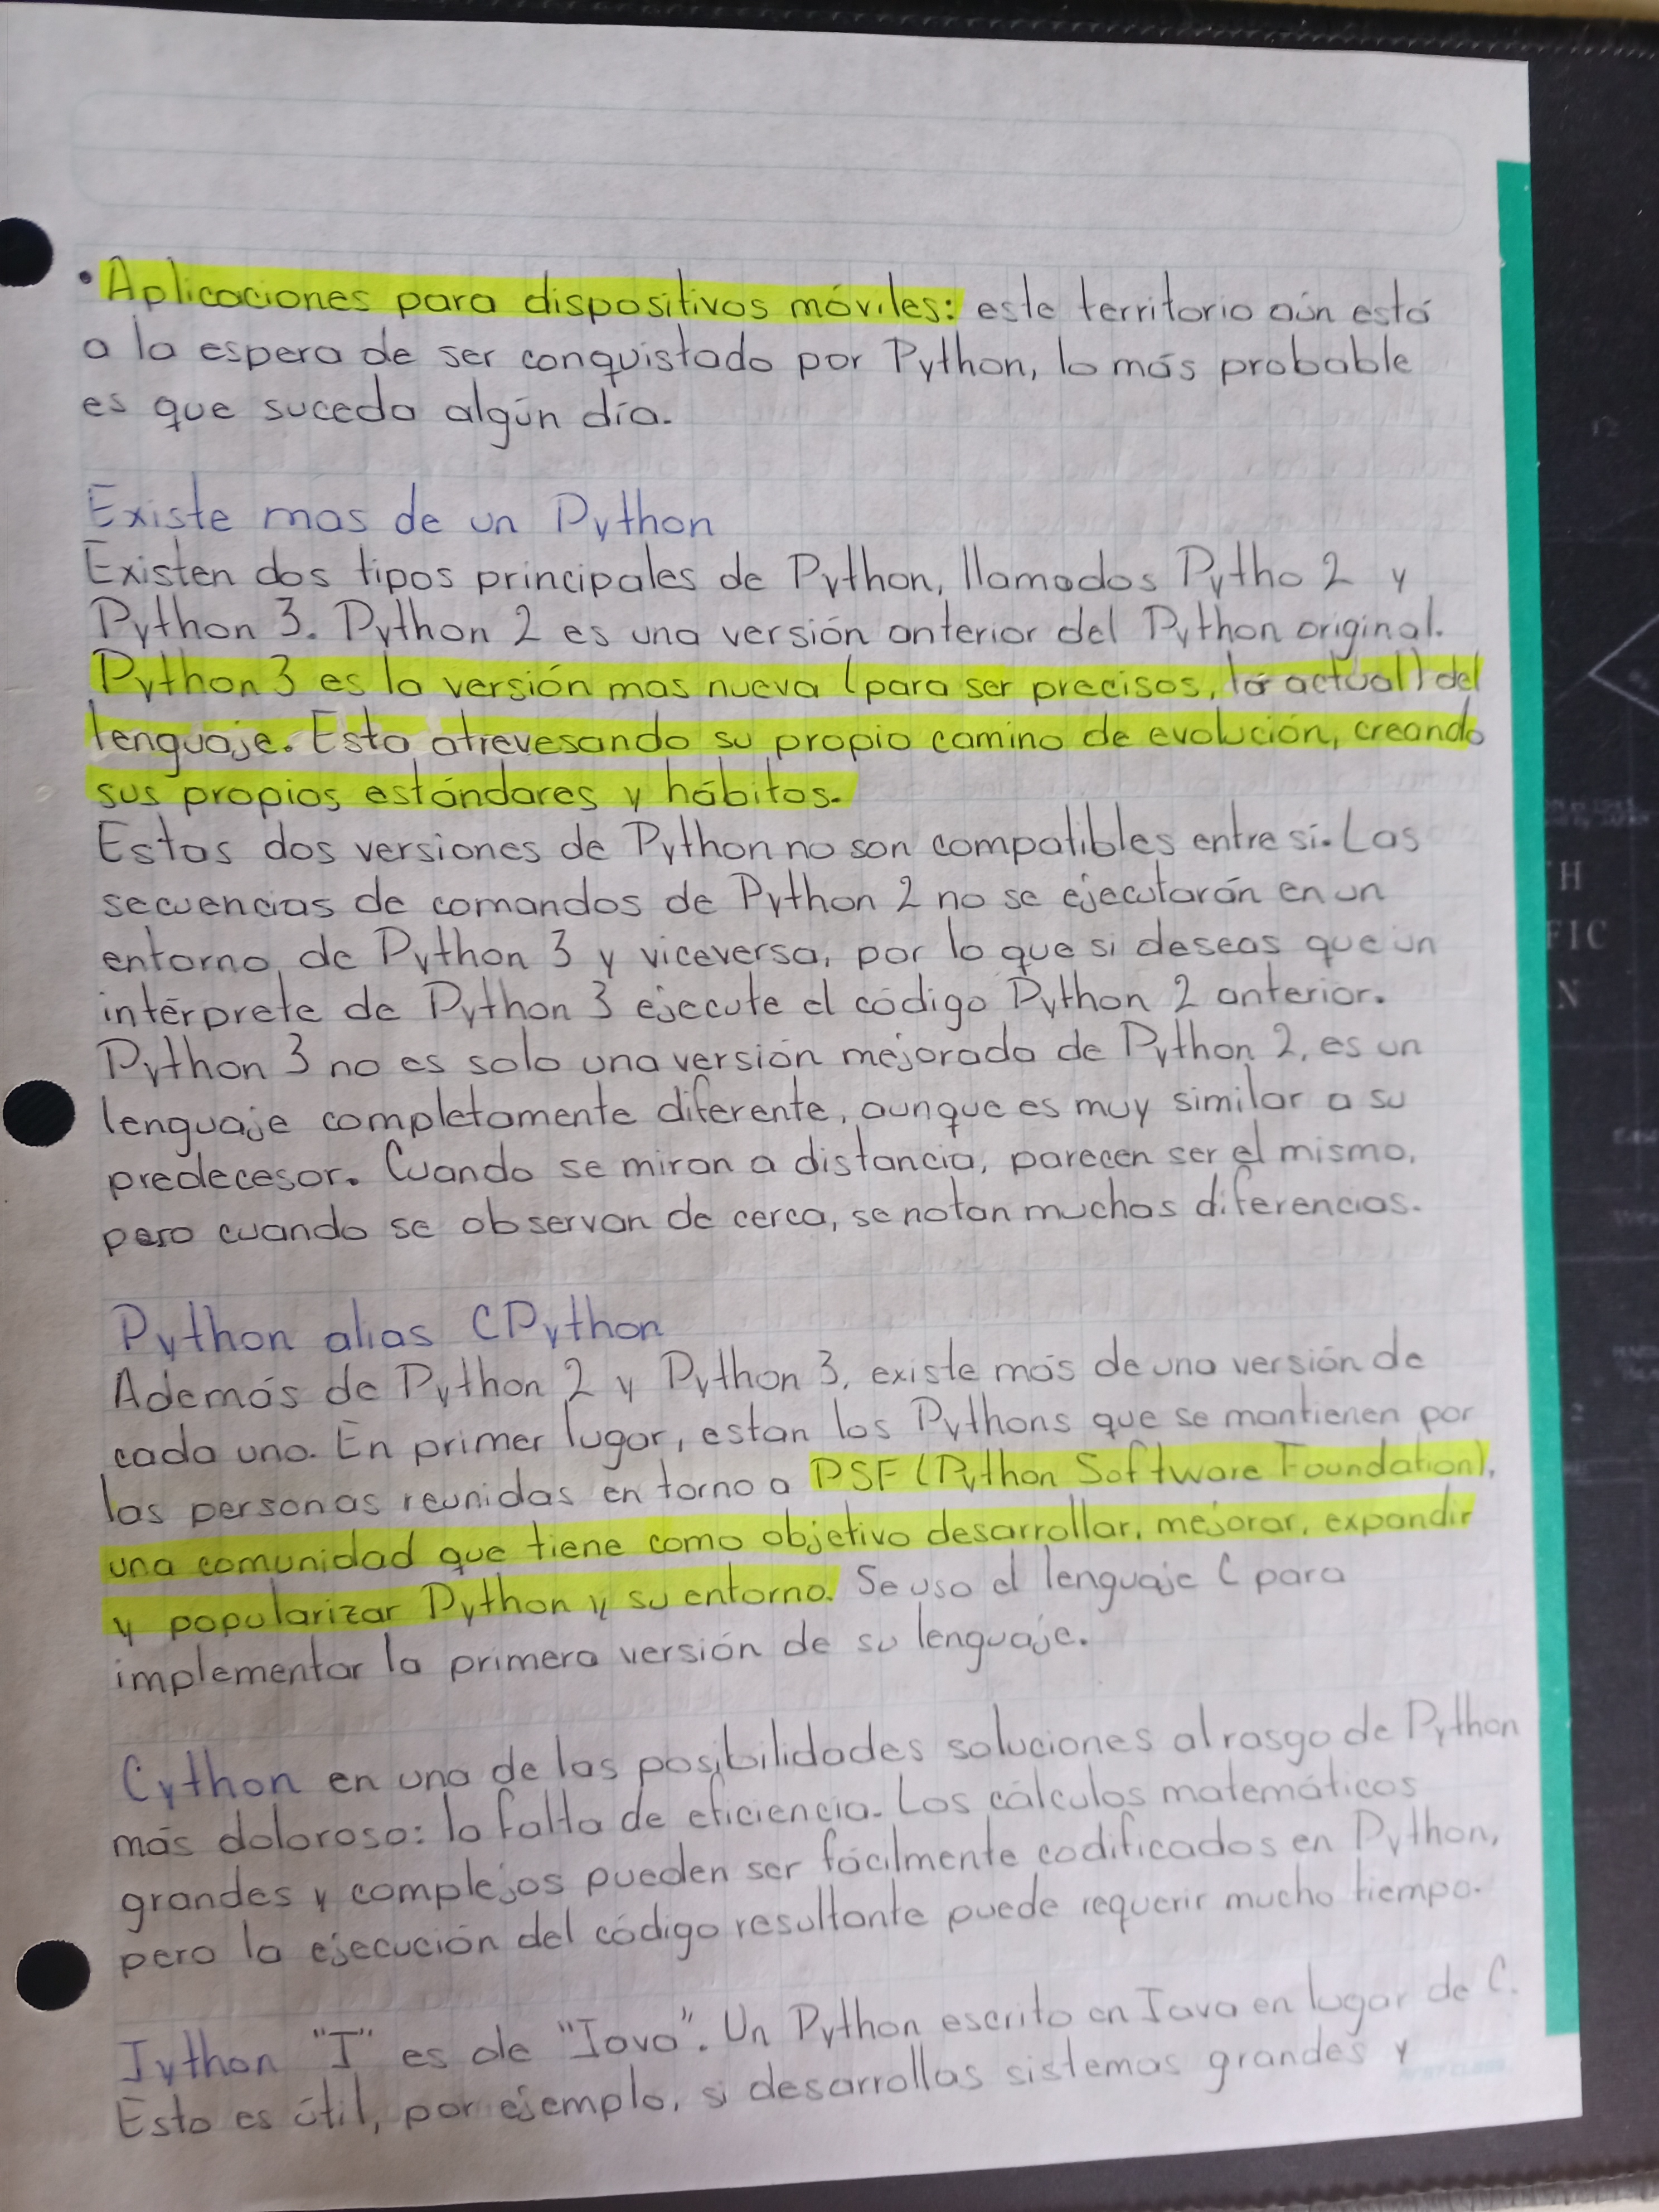 • Aplicaciones para dispositivos móviles: este territorio aún está
a la espera de ser conquistado por Python, lo más probable
es que suceda algún día.
Existe mas de un Python
Existen dos tipos principales de Python, llamados Pytho 2 y
Python 3. Python 2 es una versión anterior del Python original.
Python 3 es la versión mas nueva (para ser precisos, la actual) del
lenguaje. Esta atrevesando su propio camino de evolución, creando
sus propios estándares y hábitos.
Estas dos versiones de Python no son compatibles entre sí. Las
secuencias de comandos de Python 2 no se ejecutarán en un
entorno de Python 3 y viceversa, por lo que si deseas que un
intérprete de Python 3 ejecute el código Python 2 anterior.
Python 3 no es solo una versión mejorada de Python 2, es un
lenguaje completamente diferente, aunque es muy similar a su
predecesor. Cuando se miran a distancia, parecen ser el mismo,
pero cuando se observan de cerca, se notan muchas diferencias.
Python alias CPython
Además de Python 2 y Python 3, existe más de una versión de
cada uno. En primer lugar, estan los Pythons que se mantienen por
las personas reunidas en torno a PSF (Python Software Foundation),
una comunidad que tiene como objetivo desarrollar, mejorar, expandir
y popularizar Python y su entorno. Se uso el lenguaje C para
implementar la primera versión de su lenguaje.
Cython en una de las posibilidades soluciones al rasgo de Python
más doloroso: la falta de eficiencia. Los cálculos matemáticos
grandes y complejos pueden ser fácilmente codificados en Python,
pero la ejecución del código resultante puede requerir mucho tiempo.
Jython "J" es de "Java". Un Python escrito en Java en lugar de C.
Esto es útil, por ejemplo, si desarrollas sistemas grandes y